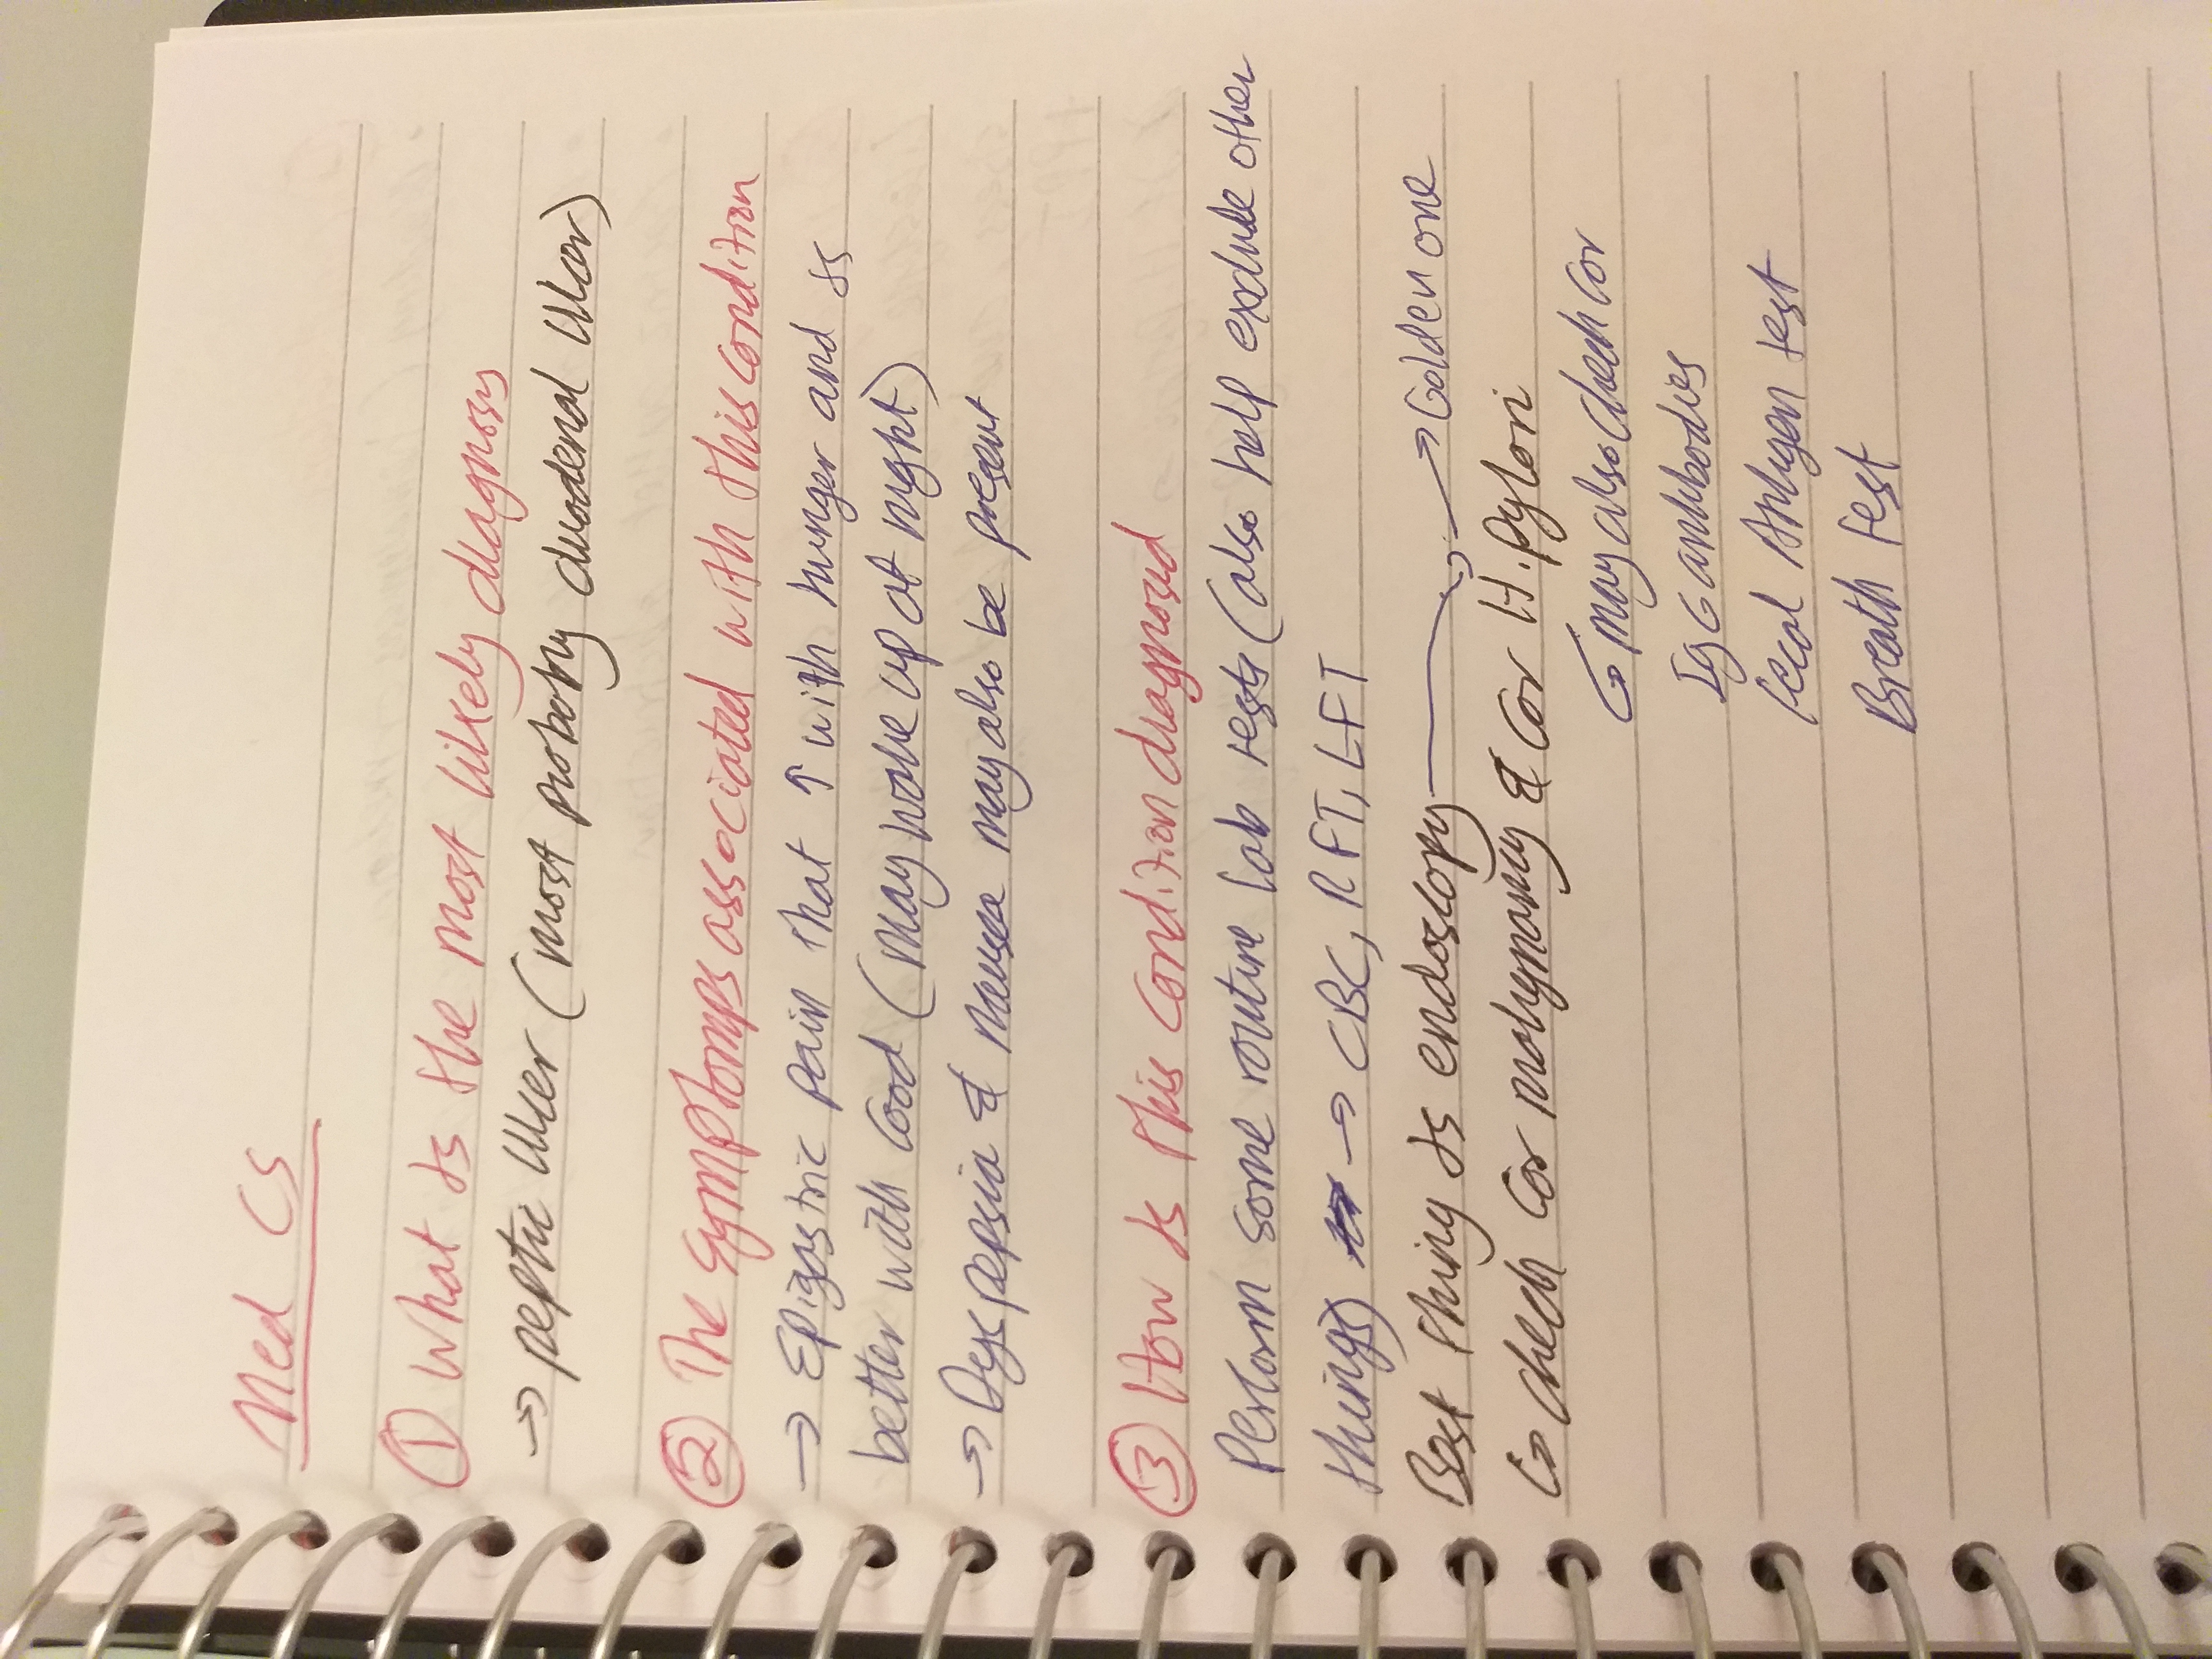 Med CS
① What is the most likely diagnosis
→ peptic ulcer (most probably duodenal ulcer)
② The symptomps associated with this condition
→ Epigastric pain that ↑ with hunger and is
better with food (may wake up at night)
→ Dyspepsia & nausea may also be present
③ How is this condition diagnosed
Perform some routine lab tests (also help exclude other
things) → CBC, RFT, LFT
Best thing is endoscopy → Golden one
↳ check for malignancy & for H. pylori
↳ may also check for
IgG antibodies
fecal Antigen test
Breath test